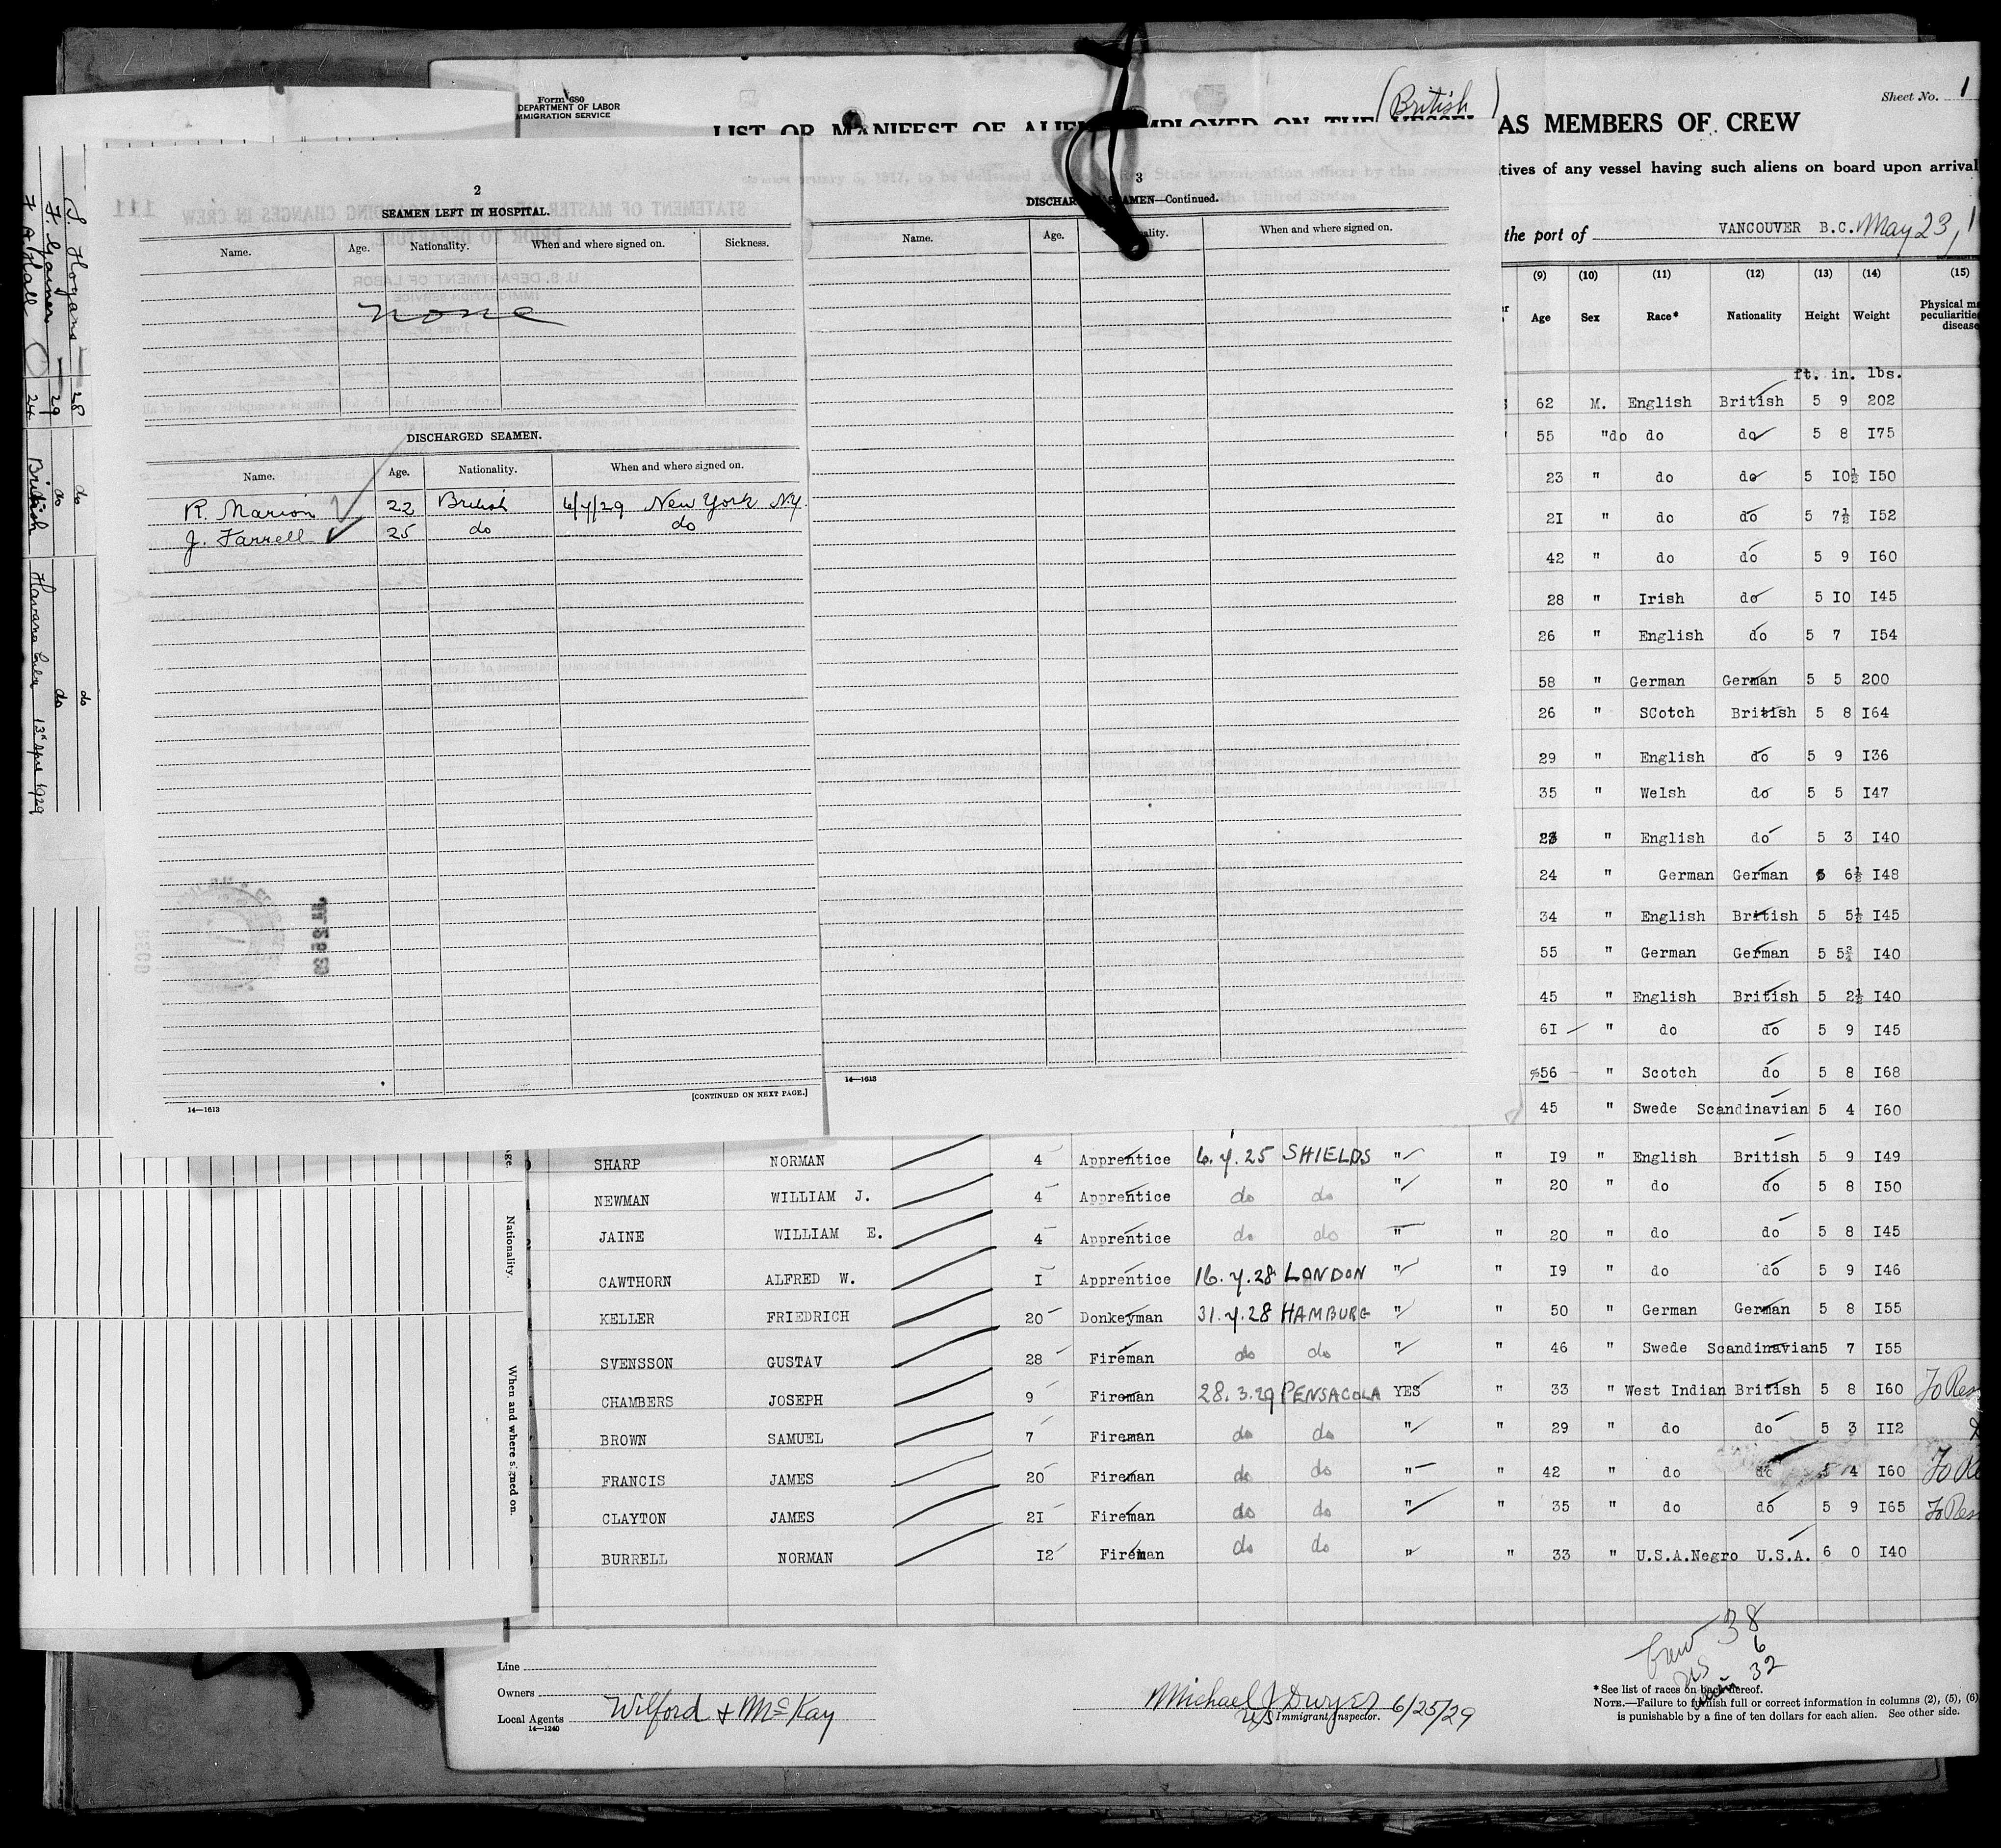 Form 680
DEPARTMENT OF LABOR
IMMIGRATION SERVICE
(British)
Sheet No. 1
LIST OR MANIFEST OF ALIENS EMPLOYED ON THE VESSEL AS MEMBERS OF CREW
tives of any vessel having such aliens on board upon arrival
the port of VANCOUVER B.C. May 23, 1
S. Hogans 28 do do
F. Gainer 29 do do
F. A. Hall 24 British Havana Cuba 13th Apr 1929
2
SEAMEN LEFT IN HOSPITAL.
Name. Age. Nationality. When and where signed on. Sickness.
none
DISCHARGED SEAMEN.
Name. Age. Nationality. When and where signed on.
R. Marion 22 British 6/4/29 New York N.Y.
J. Farrell 25 do do
14—1613
[CONTINUED ON NEXT PAGE.]
3
DISCHARGED SEAMEN—Continued.
Name. Age. Nationality. When and where signed on.
14—1613
(9) (10) (11) (12) (13) (14) (15)
Age Sex Race* Nationality Height Weight Physical
ft. in. lbs.
62 M. English British 5 9 202
55 "do do do 5 8 I75
23 " do do 5 I0½ I50
2I " do do 5 7½ I52
42 " do do 5 9 I60
28 " Irish do 5 I0 I45
26 " English do 5 7 I54
58 " German German 5 5 200
26 " SCotch British 5 8 I64
29 " English do 5 9 I36
35 " Welsh do 5 5 I47
" English do 5 3 I40
24 " German German 5 6½ I48
34 " English British 5 5½ I45
55 " German German 5 5¾ I40
45 " English British 5 2½ I40
6I " do do 5 9 I45
56 " Scotch do 5 8 I68
45 " Swede Scandinavian 5 4 I60
SHARP NORMAN 4 Apprentice 6.4.25 SHIELDS " " I9 " English British 5 9 I49
NEWMAN WILLIAM J. 4 Apprentice do do " " 20 " do do 5 8 I50
JAINE WILLIAM E. 4 Apprentice do do " " 20 " do do 5 8 I45
CAWTHORN ALFRED W. I Apprentice 16.4.28 LONDON " " I9 " do do 5 9 I46
KELLER FRIEDRICH 20 Donkeyman 31.4.28 HAMBURG " " 50 " German German 5 8 I55
SVENSSON GUSTAV 28 Fireman do do " " 46 " Swede Scandinavian 5 7 I55
CHAMBERS JOSEPH 9 Fireman 28.3.29 PENSACOLA YES " 33 " West Indian British 5 8 I60
BROWN SAMUEL 7 Fireman do do " " 29 " do do 5 3 II2
FRANCIS JAMES 20 Fireman do do " " 42 " do do 5 4 I60
CLAYTON JAMES 2I Fireman do do " " 35 " do do 5 9 I65
BURRELL NORMAN I2 Fireman do do " " 33 " U.S.A.Negro U.S.A. 6 0 I40
Nationality.
When and where signed on.
Crew 38
US 6
32
Line
Owners
Local Agents Wilford & McKay
14—1240
Michael J Dwyer 6/25/29
US Immigrant Inspector.
*See list of races on back hereof.
NOTE.—Failure to furnish full or correct information in columns (2), (5), (6)
is punishable by a fine of ten dollars for each alien. See other side.